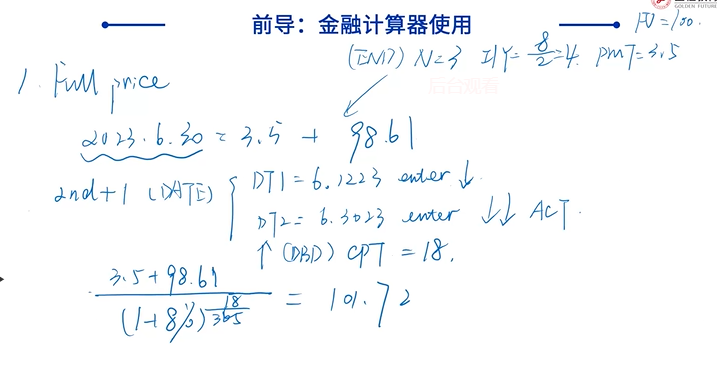 GOLDEN FUTURE
前导：金融计算器使用
FV=100.
(END) N=3 I/Y=8/2=4. PMT=3.5
后台观看
1. Full price
2023.6.30 = 3.5 + 98.61
2nd+1 (DATE)
DT1=6.1223 enter ↓
DT2=6.3023 enter ↓↓ ACT.
↑ (DBD) CPT=18.
3.5+98.61
(1+8%)^(18/365) = 101.72